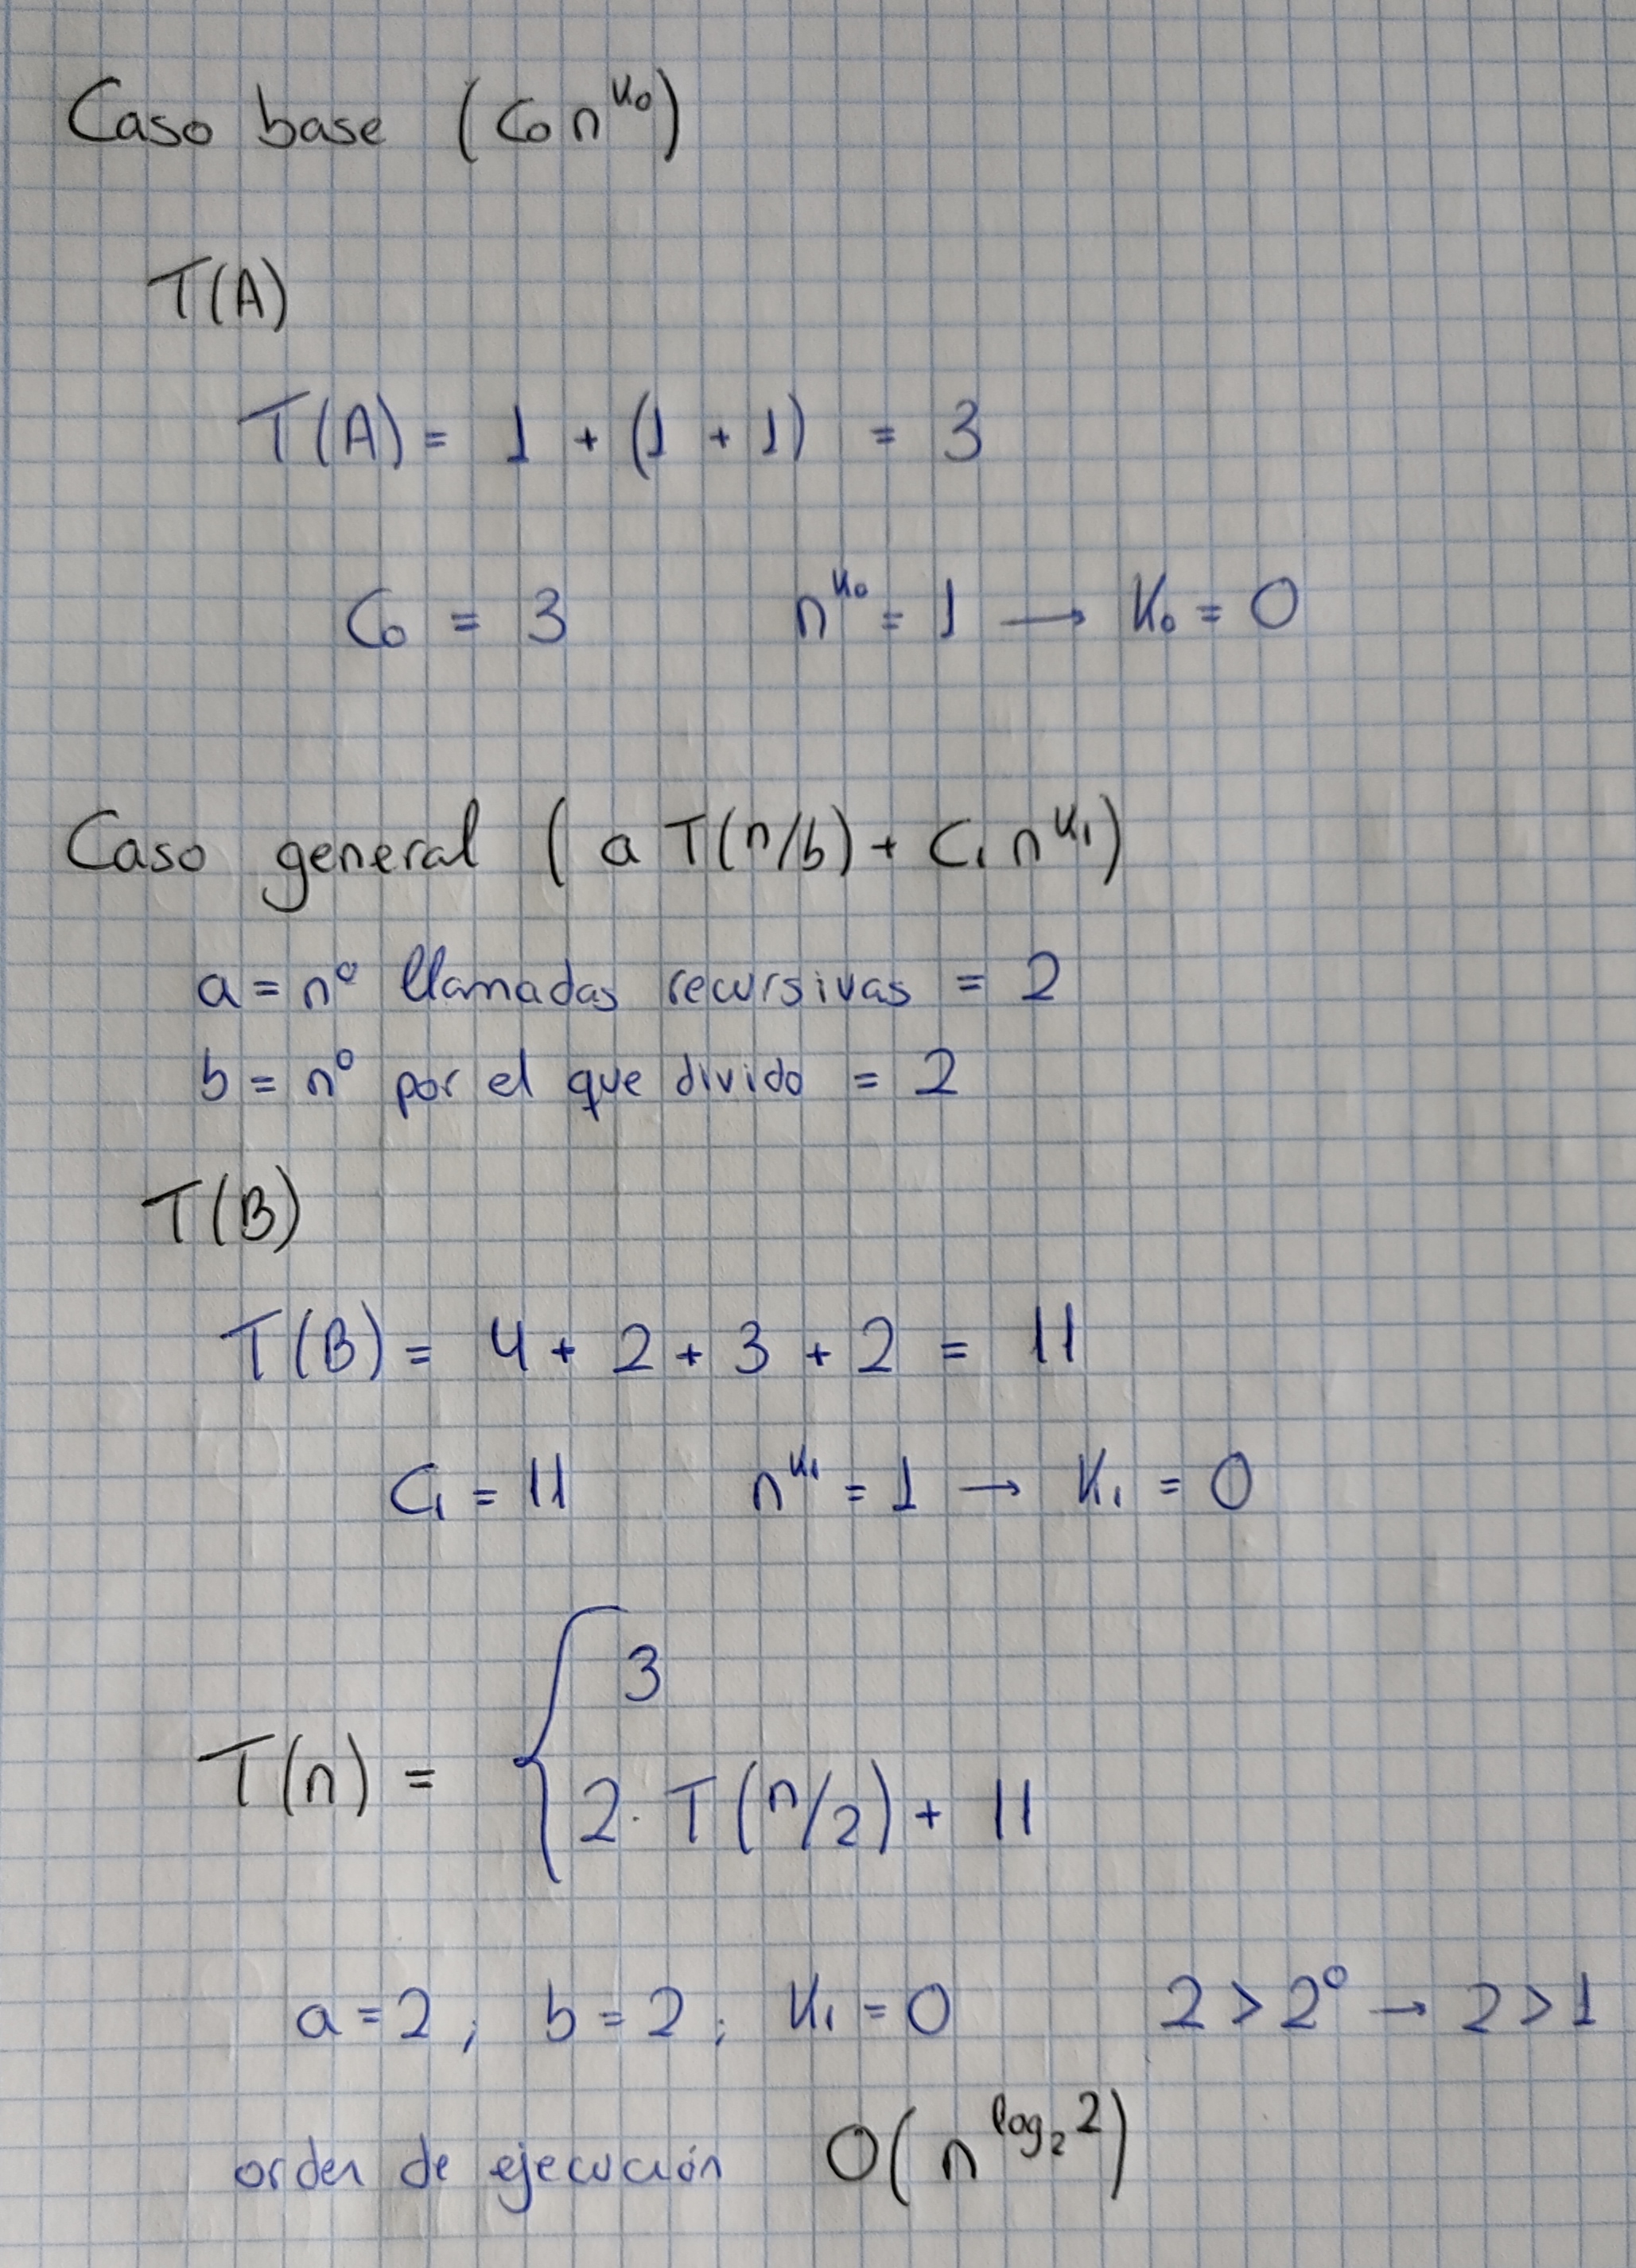 Caso base (C₀ n^K₀)
T(A)
T(A) = 1 + (1 + 1) = 3
C₀ = 3 n^K₀ = 1 → K₀ = 0
Caso general (a T(n/b) + C₁ n^K₁)
a = nº llamadas recursivas = 2
b = nº por el que divido = 2
T(B)
T(B) = 4 + 2 + 3 + 2 = 11
C₁ = 11 n^K₁ = 1 → K₁ = 0
3
T(n) = {
2 · T(n/2) + 11
a = 2 ; b = 2 ; K₁ = 0 2 > 2⁰ → 2 > 1
orden de ejecución O(n^log₂ 2)